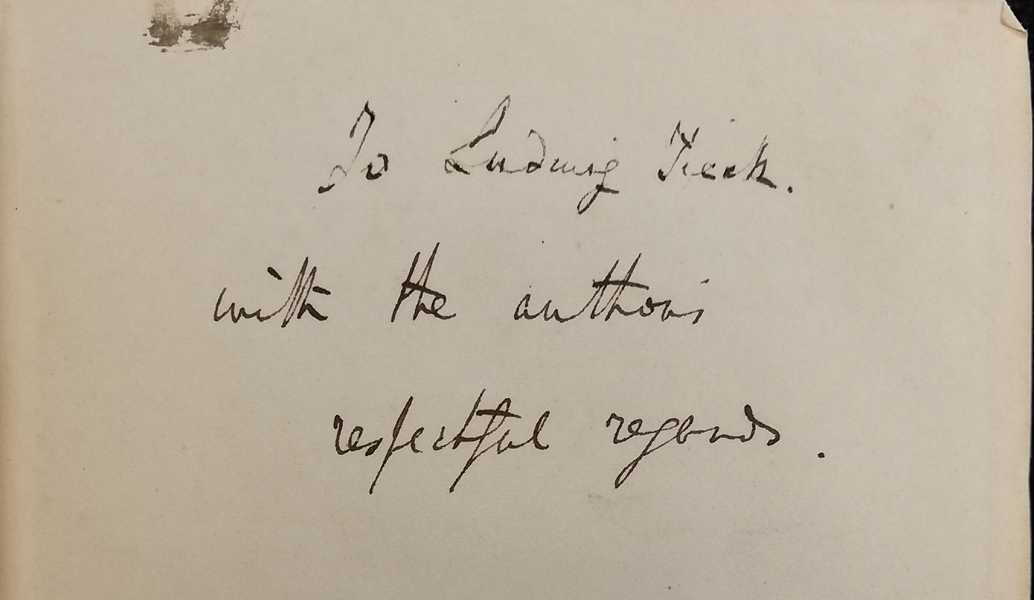 To Ludwig Tieck.
with the author's
respectful regards.